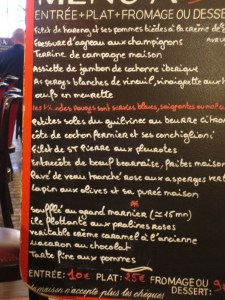 MENU A
ENTRÉE+PLAT+FROMAGE OU DESSE
Filet de hareng et ses pommes tièdes à la crème de
Pressure d'agneau aux champignons
Terrine de campagne maison
Assiette de jambon de cochonne iberique
Asperges blanches de vineuil, vinaigrette aux
oeufs en meurette
Les viandes rouges sont servies bleues, saignantes ou
Petites soles du guilvinec au beurre citron
côte de cochon fermier et ses conchiglioni
Filet de St Pierre aux pleurotes
Entrecôte de boeuf bearnaise, frites maison
Pavé de veau tranché rose aux asperges vert
Lapin aux olives et sa purée maison
Soufflé au grand marnier (≃15mn)
île flottante aux pralines roses
Veritable crème caramel à l'ancienne
Macaron au chocolat
Tarte fine aux pommes
ENTRÉE: 10€ PLAT: 25€ FROMAGE OU
DESSERT: 9
la maison n'accepte plus les chèques